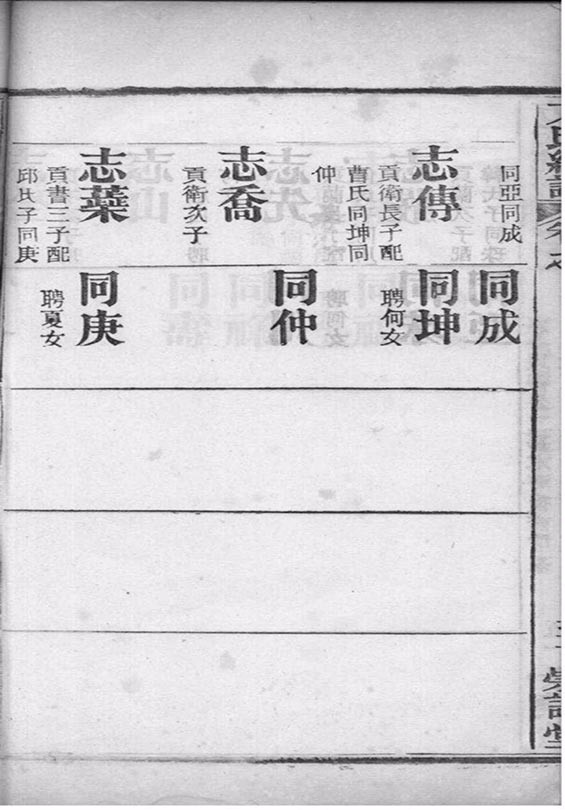 同亞同成
志傳
貢衛長子配
曹氏同坤同
仲
志喬
貢衛次子
志葉
貢書三子配
邱氏子同庚
同成
同坤
聘何女
同仲
同庚
聘夏女